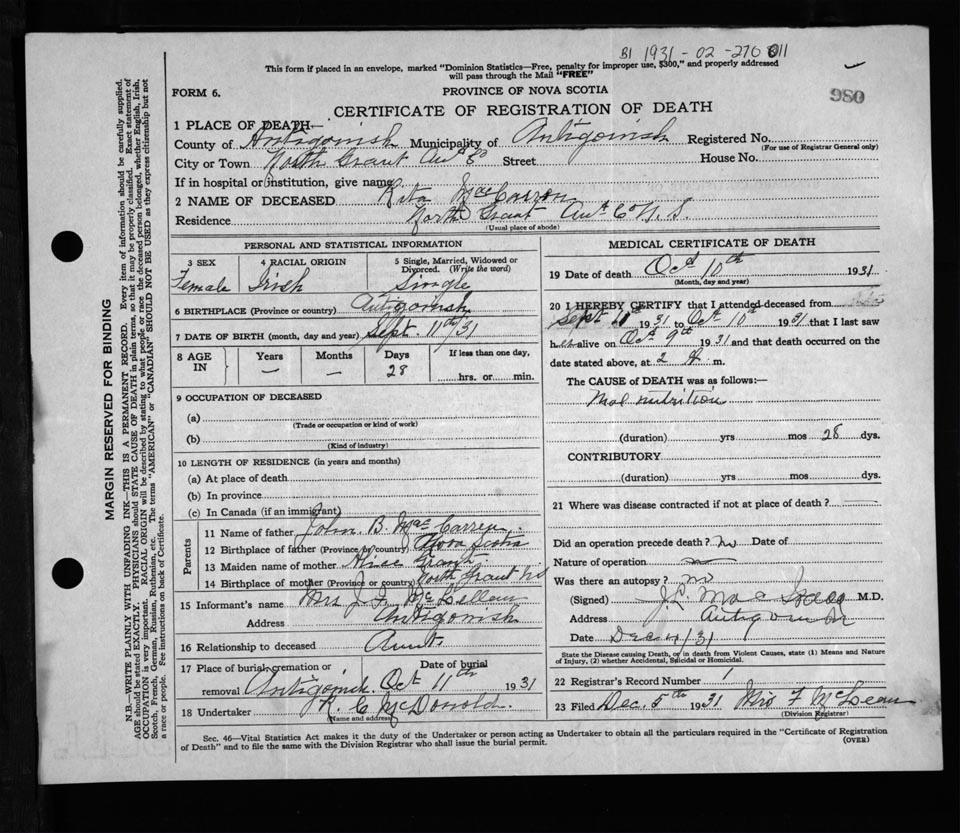 BI 1931-02-270 011
This form if placed in an envelope, marked "Dominion Statistics—Free, penalty for improper use, $300," and properly addressed
will pass through the Mail "FREE"
FORM 6.
PROVINCE OF NOVA SCOTIA
980
CERTIFICATE OF REGISTRATION OF DEATH
1 PLACE OF DEATH—
County of Antigonish Municipality of Antigonish Registered No.
(For use of Registrar General only)
City or Town North Grant Ant Co Street House No.
If in hospital or institution, give name
2 NAME OF DECEASED Rita MacCarron
Residence North Grant Ant Co N. S.
(Usual place of abode)
PERSONAL AND STATISTICAL INFORMATION
3 SEX 4 RACIAL ORIGIN 5 Single, Married, Widowed or Divorced. (Write the word)
Female Irish Single
6 BIRTHPLACE (Province or country) Antigonish
7 DATE OF BIRTH (month, day and year) Sept. 11th/31
8 AGE IN Years Months Days If less than one day,
— — 28 hrs. or min.
9 OCCUPATION OF DECEASED
(a)
(Trade or occupation or kind of work)
(b)
(Kind of industry)
10 LENGTH OF RESIDENCE (in years and months)
(a) At place of death
(b) In province
(c) In Canada (if an immigrant)
Parents
11 Name of father John. B. MacCarron.
12 Birthplace of father (Province or country) Nova Scotia
13 Maiden name of mother Alice Grant
14 Birthplace of mother (Province or country) North Grant NS
15 Informant's name Mrs J.
Address Antigonish
16 Relationship to deceased Aunt
17 Place of burial, cremation or removal Antigonish. Date of burial Oct 11th 1931
18 Undertaker R. C McDonald.
(Name and address)
MEDICAL CERTIFICATE OF DEATH
19 Date of death Oct 10th 1931
(Month, day and year)
20 I HEREBY CERTIFY that I attended deceased from
Sept 1931 to Oct 10th 1931 that I last saw
her alive on Oct 9th 1931 and that death occurred on the
date stated above, at 2 A. m.
The CAUSE of DEATH was as follows:—
Mal nutrition
(duration) yrs mos 28 dys.
CONTRIBUTORY
(duration) yrs mos dys.
21 Where was disease contracted if not at place of death?
Did an operation precede death? no Date of
Nature of operation
Was there an autopsy? no
(Signed) J.L. MacIsaac M.D.
Address Antigonish
Date Dec 4/31
State the Disease causing Death, or in death from Violent Causes, state (1) Means and Nature
of Injury, (2) whether Accidental, Suicidal or Homicidal.
22 Registrar's Record Number 1
23 Filed Dec. 5th 1931 Miss F McLean
(Division Registrar)
Sec. 46—Vital Statistics Act makes it the duty of the Undertaker or person acting as Undertaker to obtain all the particulars required in the "Certificate of Registration
of Death" and to file the same with the Division Registrar who shall issue the burial permit.
(OVER)
MARGIN RESERVED FOR BINDING
N.B.—WRITE PLAINLY WITH UNFADING INK—THIS IS A PERMANENT RECORD. Every item of information should be carefully supplied.
AGE should be stated EXACTLY. PHYSICIANS should STATE CAUSE OF DEATH in plain terms, so that it may be properly classified. Exact statement of
OCCUPATION is very important. RACIAL ORIGIN will be described by stating to what people or race the deceased person belonged, whether English, Irish,
Scotch, French, German, Russian, Ruthenian, etc. The terms "AMERICAN" or "CANADIAN" SHOULD NOT BE USED as they express citizenship but not
a race or people. See instructions on back of Certificate.